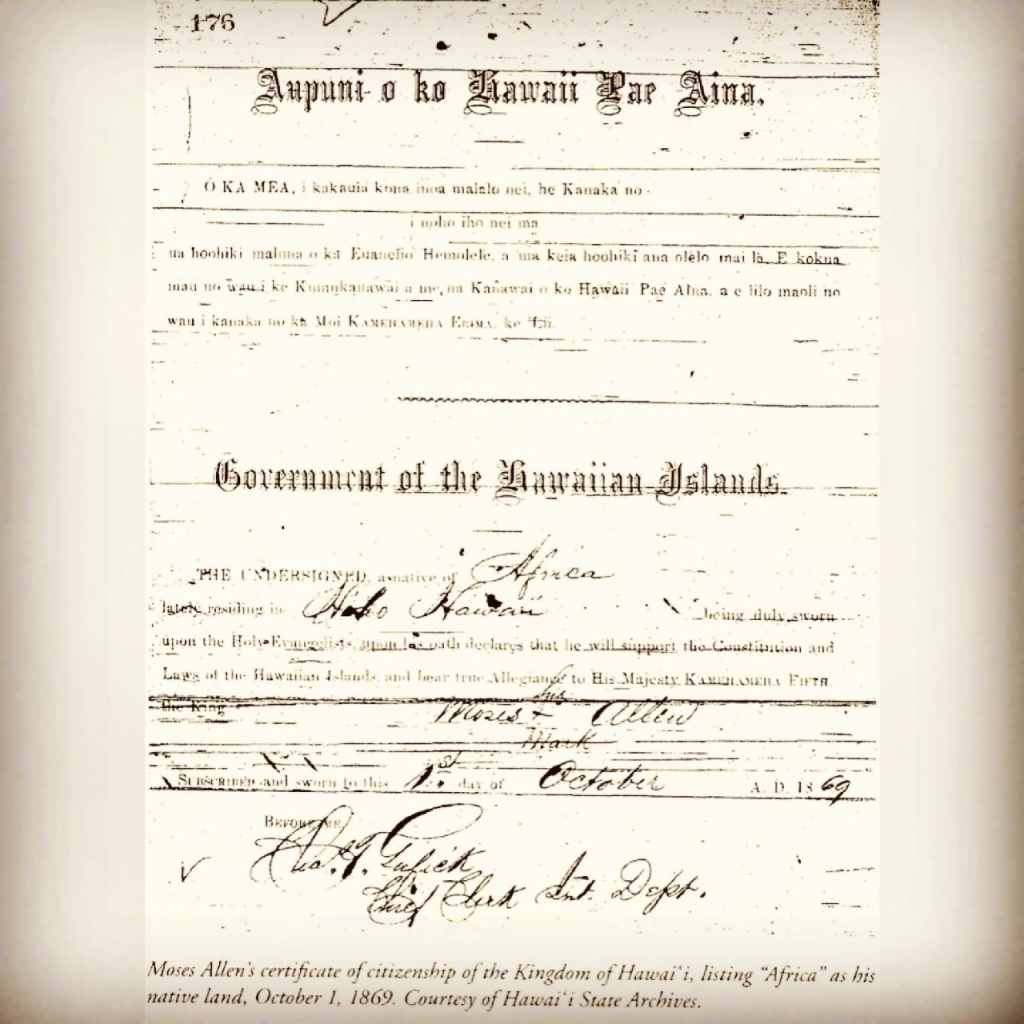 176
Aupuni o ko Hawaii Pae Aina.
O KA MEA, i kakauia kona inoa malalo nei, he Kanaka no
i noho iho nei ma
ua hoohiki maluna o ka Euanelio Hemolele, a ma keia hoohiki ana olelo mai la, E kokua
mau no wau i ke Kumukanawai a me na Kanawai o ko Hawaii Pae Aina, a e lilo maoli no
wau i kanaka no ka Moi KAMEHAMEHA ELIMA, ke
Government of the Hawaiian Islands.
THE UNDERSIGNED, a native of Africa
lately residing in Hilo Hawaii being duly sworn
upon the Holy Evangelists, upon his oath declares that he will support the Constitution and
Laws of the Hawaiian Islands, and bear true Allegiance to His Majesty KAMEHAMEHA FIFTH,
the King
his
Moses + Allen
Mark
SUBSCRIBED and sworn to this 1st day of October A. D. 1869
BEFORE ME,
Chas. T. Gulick
Chief Clerk Int. Dept.
Moses Allen's certificate of citizenship of the Kingdom of Hawai‘i, listing "Africa" as his
native land, October 1, 1869. Courtesy of Hawai‘i State Archives.